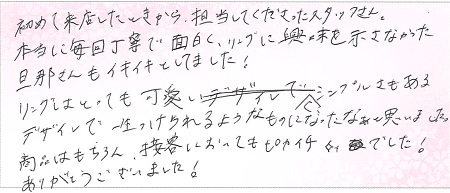 初めて来店したときから、担当してくださったスタッフさん。
本当に毎回丁寧で面白く、リングに興味を示さなかった
旦那さんもイキイキとしてました!
リングはとっても可愛いデザインでシンプルさもある
デザインで一生つけられるようなものになったなぁと思いました。
商品はもちろん、接客においてもピカイチでした!
ありがとうございました!